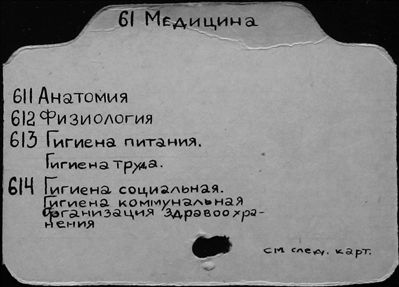 61 Медицина
611 Анатомия
612 Физиология
613 Гигиена питания.
Гигиена труда.
614 Гигиена социальная.
Гигиена коммунальная
Организация здравоохра-
нения
см след. карт.